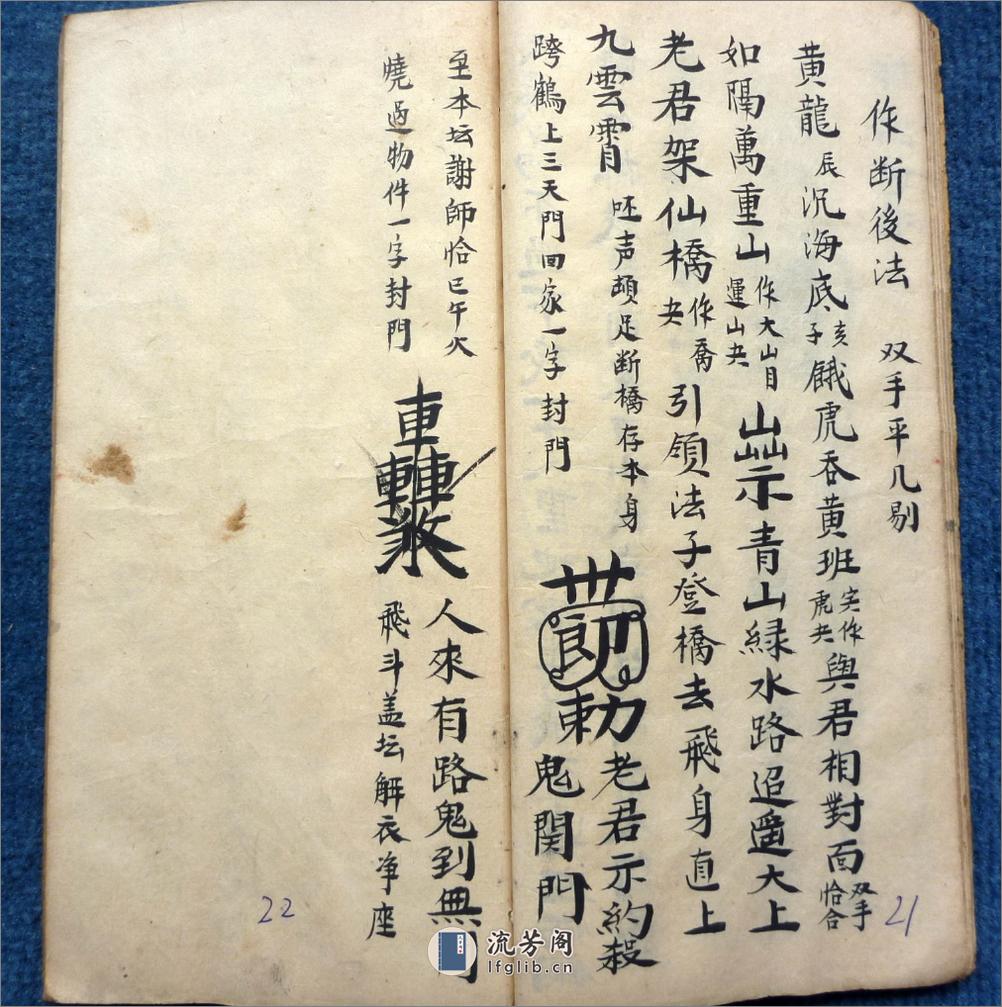 作断後法 双手平几剔
黄龍辰沉海底亥子餓虎吞黄班実作虎大與君相對面双手恰合
如隔萬重山作大山目運山大 示青山緑水路迢遥大上
老君架仙橋作喬大引領法子登橋去飛身直上
九雲霄呸声頓足断橋存本身 勅老君示約殺
跨鶴上三天門回家一字封門 鬼関門
至本坛謝師恰巳午火 人來有路鬼到無門
燒過物件一字封門 飛斗盖坛解衣净座
21
22
流芳阁
lfglib.cn